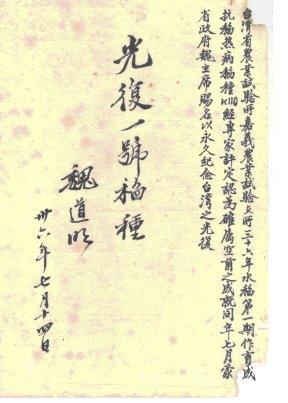 台灣省農業試驗所嘉義農業試驗支所三十六年水稻第一期作育成
抗稻熱病稻種 經專家評定認為確屬空前之成就同年七月蒙
省政府魏主席賜名以永久紀念台灣之光復
光復一號稻種
魏道明
卅六年七月十四日